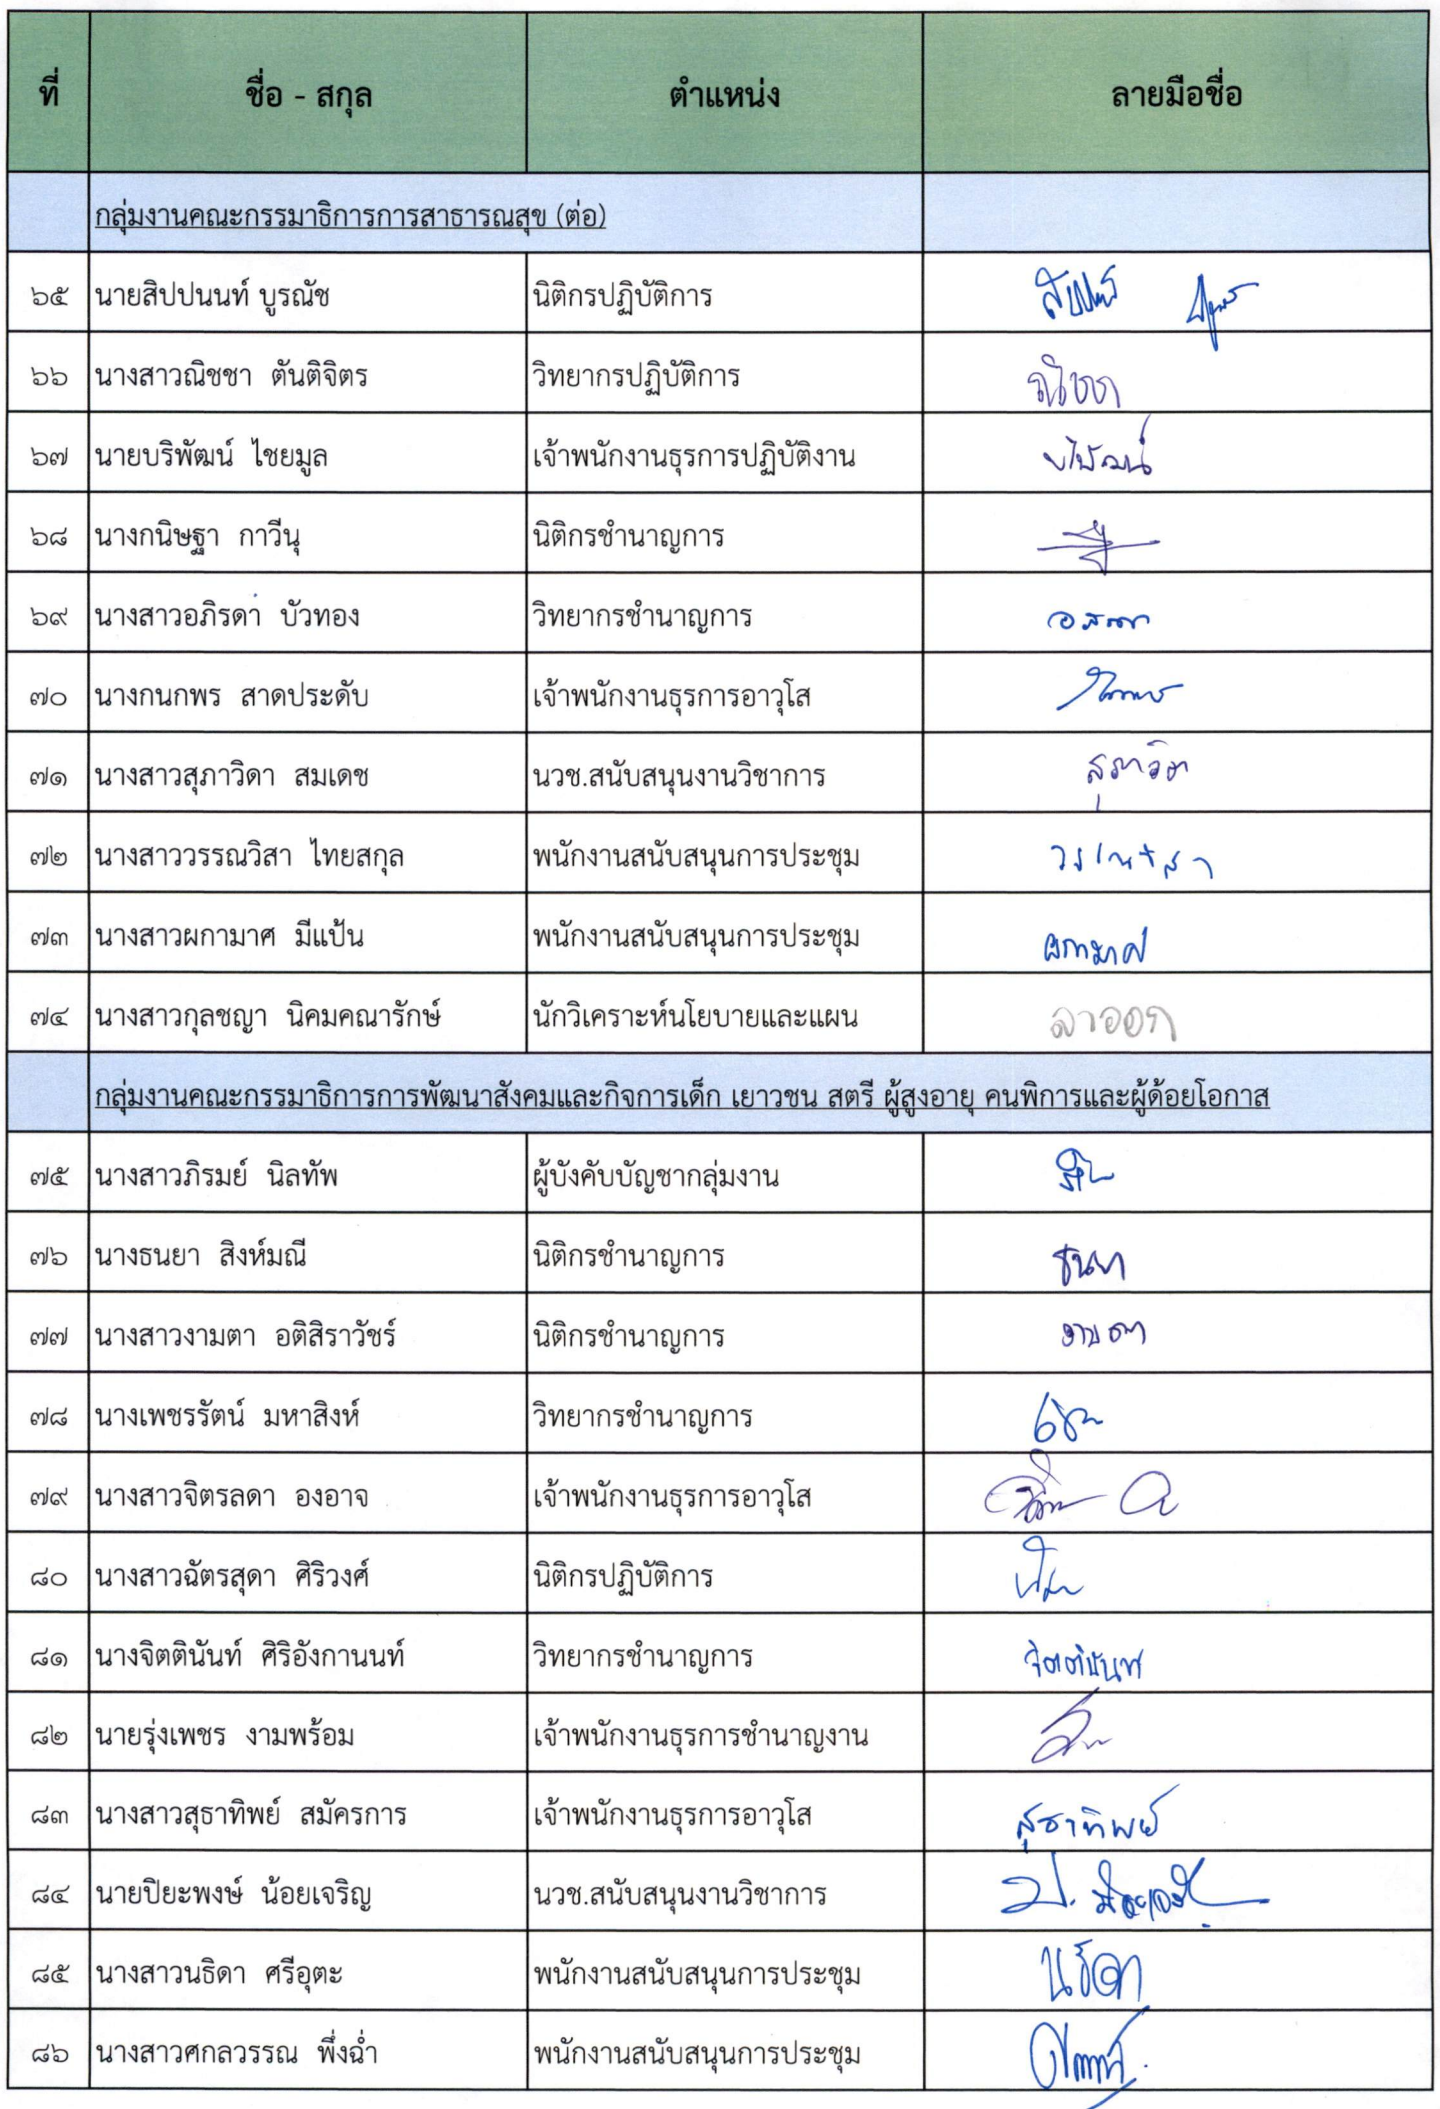 ที่ ชื่อ - สกุล ตำแหน่ง ลายมือชื่อ
กลุ่มงานคณะกรรมาธิการการสาธารณสุข (ต่อ)
๖๕ นายสิปปนนท์ บูรณัช นิติกรปฏิบัติการ
๖๖ นางสาวณิชชา ตันติจิตร วิทยากรปฏิบัติการ ณิชชา
๖๗ นายบริพัฒน์ ไชยมูล เจ้าพนักงานธุรการปฏิบัติงาน
๖๘ นางกนิษฐา กาวีนุ นิติกรชำนาญการ
๖๙ นางสาวอภิรดา บัวทอง วิทยากรชำนาญการ
๗๐ นางกนกพร สาดประดับ เจ้าพนักงานธุรการอาวุโส
๗๑ นางสาวสุภาวิดา สมเดช นวช.สนับสนุนงานวิชาการ
๗๒ นางสาววรรณวิสา ไทยสกุล พนักงานสนับสนุนการประชุม วรรณวิสา
๗๓ นางสาวผกามาศ มีแป้น พนักงานสนับสนุนการประชุม ผกามาศ
๗๔ นางสาวกุลชญา นิคมคณารักษ์ นักวิเคราะห์นโยบายและแผน ลาออก
กลุ่มงานคณะกรรมาธิการการพัฒนาสังคมและกิจการเด็ก เยาวชน สตรี ผู้สูงอายุ คนพิการและผู้ด้อยโอกาส
๗๕ นางสาวภิรมย์ นิลทัพ ผู้บังคับบัญชากลุ่มงาน
๗๖ นางธนยา สิงห์มณี นิติกรชำนาญการ ธนยา
๗๗ นางสาวงามตา อติสิราวัชร์ นิติกรชำนาญการ งามตา
๗๘ นางเพชรรัตน์ มหาสิงห์ วิทยากรชำนาญการ
๗๙ นางสาวจิตรลดา องอาจ เจ้าพนักงานธุรการอาวุโส
๘๐ นางสาวฉัตรสุดา ศิริวงศ์ นิติกรปฏิบัติการ
๘๑ นางจิตตินันท์ ศิริอังกานนท์ วิทยากรชำนาญการ จิตตินันท์
๘๒ นายรุ่งเพชร งามพร้อม เจ้าพนักงานธุรการชำนาญงาน
๘๓ นางสาวสุธาทิพย์ สมัครการ เจ้าพนักงานธุรการอาวุโส สุธาทิพย์
๘๔ นายปิยะพงษ์ น้อยเจริญ นวช.สนับสนุนงานวิชาการ
๘๕ นางสาวนธิดา ศรีอุตะ พนักงานสนับสนุนการประชุม นธิดา
๘๖ นางสาวศกลวรรณ พึ่งฉ่ำ พนักงานสนับสนุนการประชุม